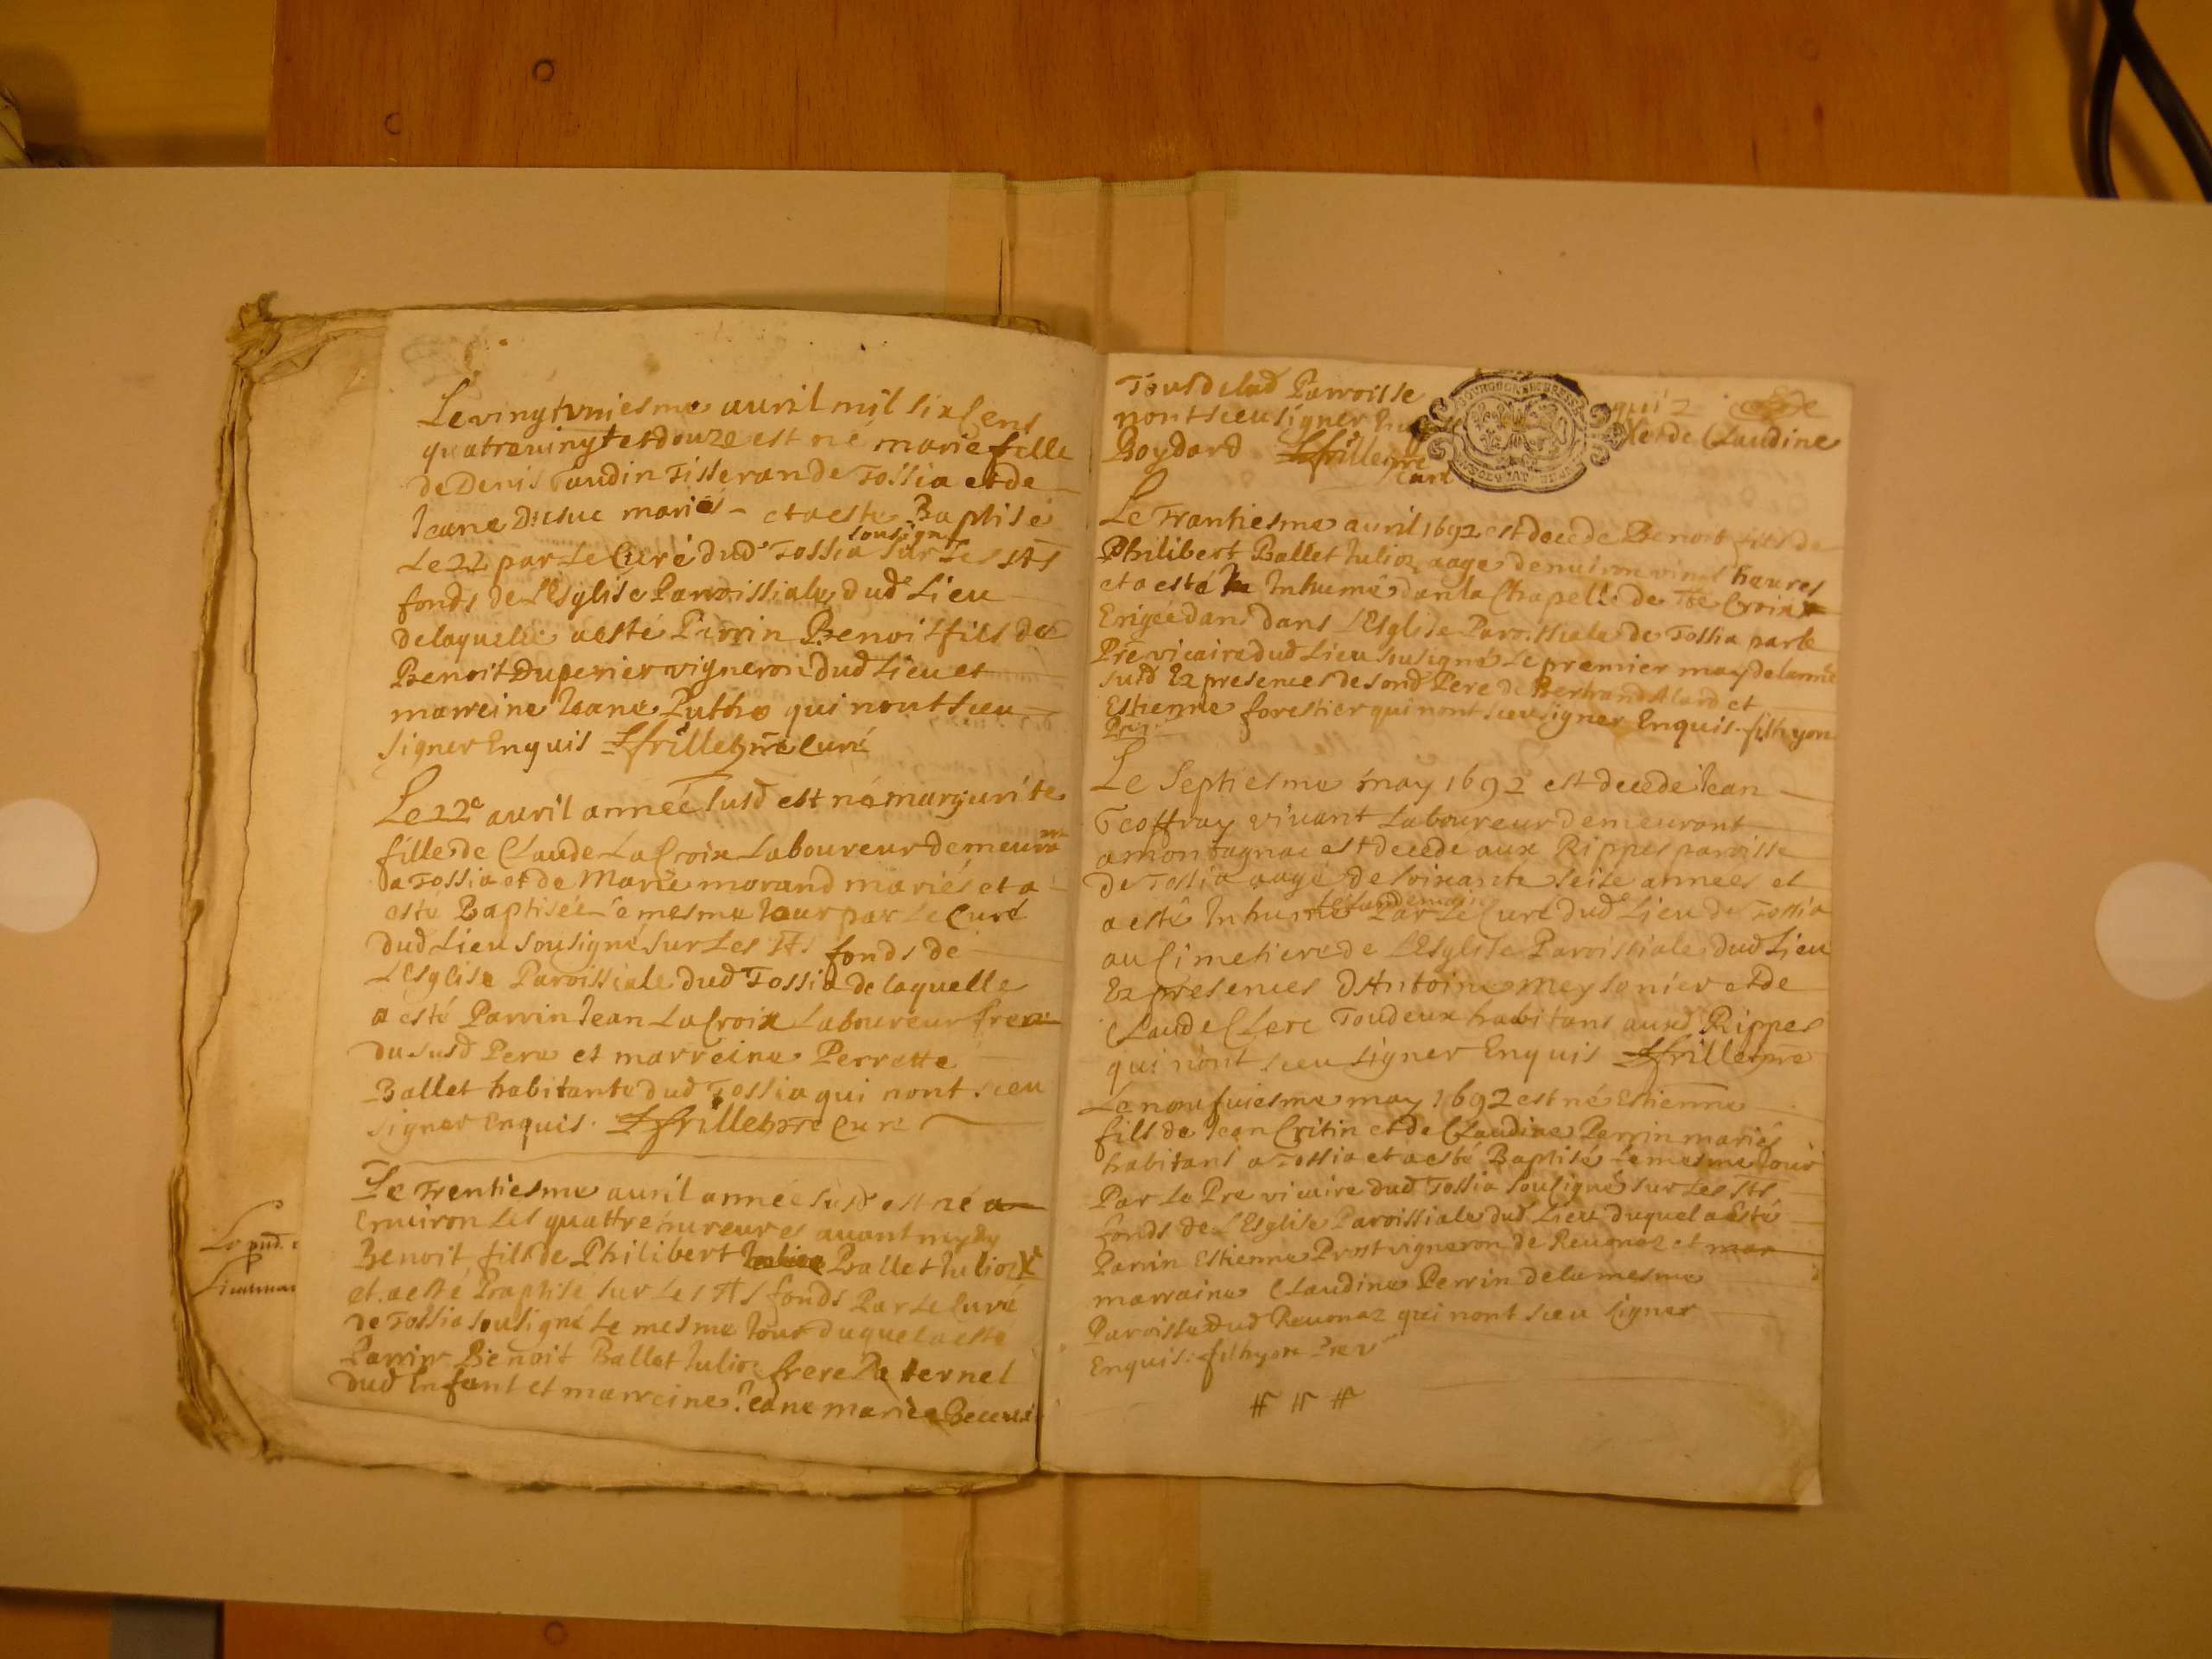 Le vingtvniesme auril mil six Cens
quatrevingt et douze est né marie fille
de Denis Gaudin Tisseran de Tossia et de
Jeane mariés - et a esté Baptisé
sousigné
Le 22 par Le Curé dud Tossia sur Les Sts
fonds de L'Esglise Paroissiale dud Lieu
de laquelle a esté Parrin Benoit fils de
Benoit Duperier vigneron dud Lieu et
marreine Jeane Putho qui nont sceu
signer Enquis Ffrillet pre Curé
Le 22e auril année susd est né margurite
fille de Claude La Croix Laboureur demeurant
a Tossia et de Marie morand mariés et a
esté Baptisée Le mesme Jour par Le Curé
dud Lieu sousigné sur Les Sts fonds de
L'Esglise Paroissiale dud Tossia de laquelle
a esté Parrin Jean La Croix Laboureur frere
du susd Pere et marreine Perrette
Ballet habitante dud Tossia qui nont sceu
signer Enquis. Ffrillet pre Curé
Le Trentiesme auril année susd est né a
Enuiron Les quattre heures auant mydy
Benoit fils de Philibert Ballet Julioz X
et a esté Baptisé sur Les Sts fonds Par Le Curé
de Tossia sousigné Le mesme Jour duquel a esté
Parrin Benoit Ballet Julioz frere Paternel
dud Enfant et marreine Jeane marie
Tous de lad Parroisse
nont sceu signer
Boydard Ffrillet pre
Curé
X et de Claudine
Le Trantiesme auril 1692 est decedé Benoit fils de
Philibert Ballet Julioz aagé denuiron vingt heures
et a esté Inhumé dans la Chapelle de Ste Croix
Erigée dans dans L'Esglise Paroissiale de Tossia par le
Pre vicaire dud Lieu sousigné Le premier may de lannée
susd Ez presences de sond Pere de Bertrand Alard et
Estienne forestier qui nont sceu signer Enquis. filhyon
Le Septiesme may 1692 est decedé Jean
Geoffray viuant Laboureur demeurant
a montagnac est decedé aux Rippes paroisse
de Tossia aagé de soixante seise années et
Le landemain
a esté Inhumé Par Le Curé dud Lieu de Tossia
au Cimetiere de L'Esglise Paroissiale dud Lieu
Ez presences d'Antoine meysonier et de
Claude Clerc Toudeux habitans auxd Rippes
qui nont sceu signer Enquis Ffrillet pre
Le neufuiesme may 1692 est né Estienne
fils de Jean Critin et de Claudine Perrin mariés
habitans a Tossia et a esté Baptisé Le mesme Jour
Par Le Pre vicaire dud Tossia sousigné sur Les Sts
fonds de L'Esglise Paroissiale dud Lieu duquel a Esté
Parrin Estienne Prost vigneron de Reuonaz et mar
marraine Claudine Perrin de la mesme
Paroisse dud Reuonaz qui nont sceu signer
Enquis: filhyon